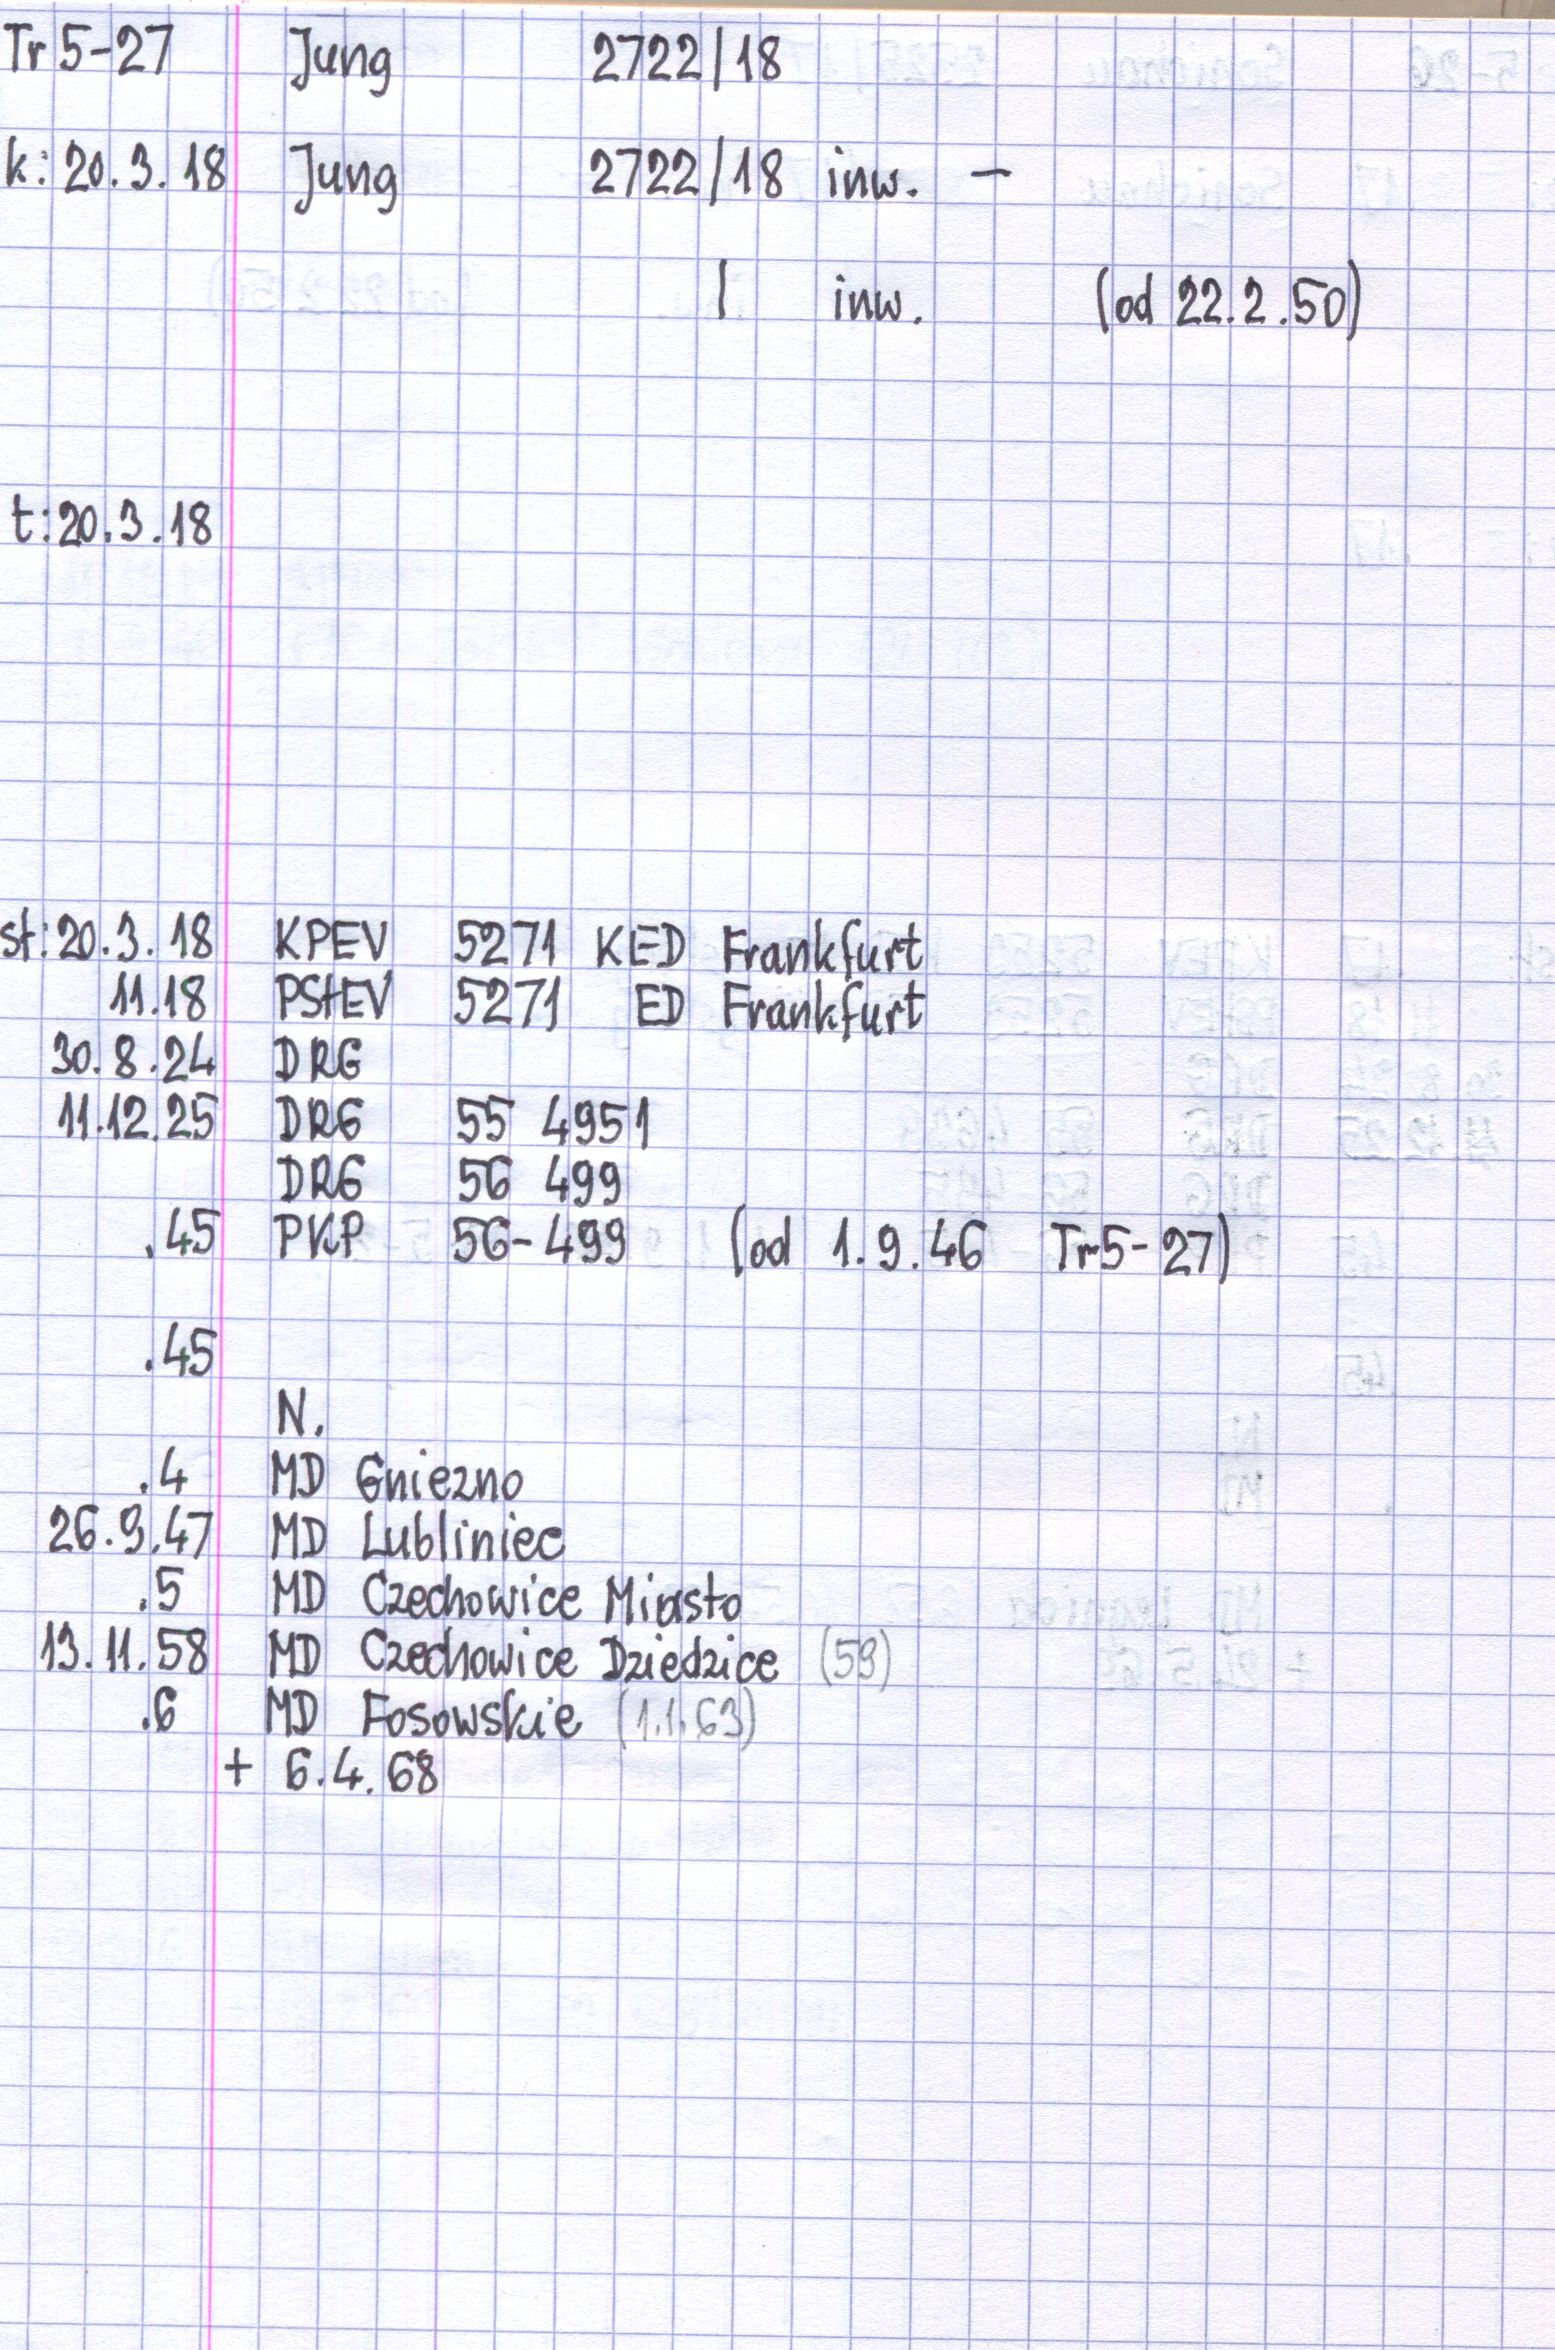 Tr 5-27 Jung 2722/18
k: 20.3.18 Jung 2722/18 inw. -
/ inw. (od 22.2.50)
t: 20.3.18
st: 20.3.18 KPEV 5271 KED Frankfurt
11.18 PStEV 5271 ED Frankfurt
30.8.24 DRG
11.12.25 DRG 55 4951
DRG 56 499
.45 PKP 56-499 (od 1.9.46 Tr5-27)
.45
N.
.4 MD Gniezno
26.9.47 MD Lubliniec
.5 MD Czechowice Miasto
13.11.58 MD Czechowice Dziedzice (59)
.6 MD Fosowskie (1.1.63)
+ 6.4.68